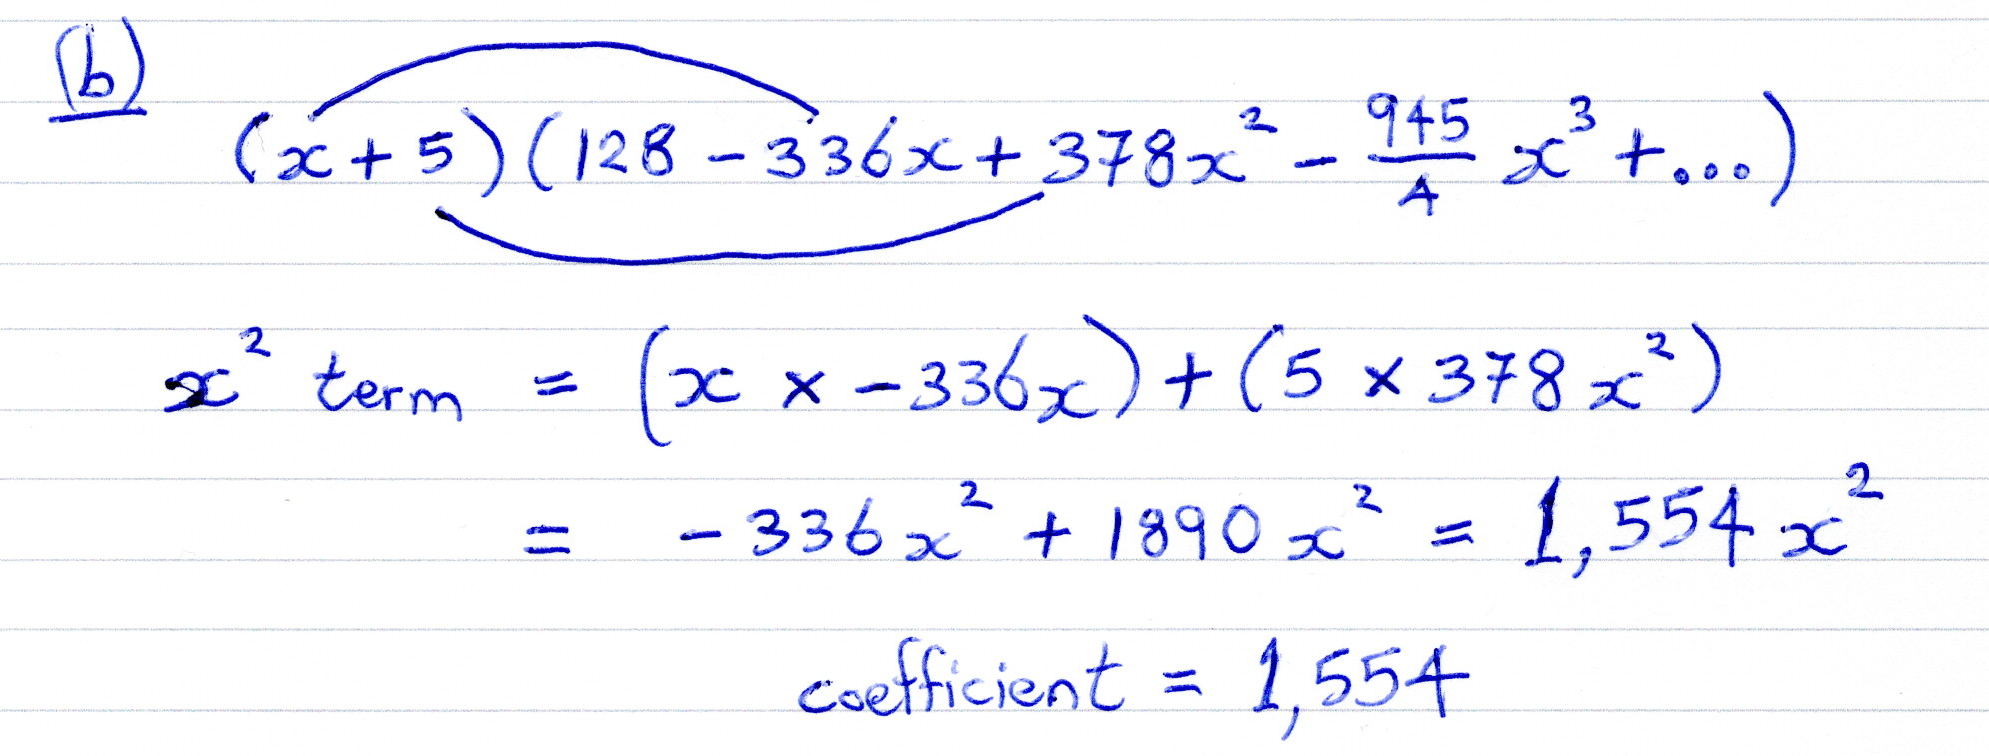 (b)
(x + 5)(128 - 336x + 378x² - 945/4 x³ + ...)
x² term = (x × -336x) + (5 × 378x²)
= -336x² + 1890x² = 1,554x²
coefficient = 1,554